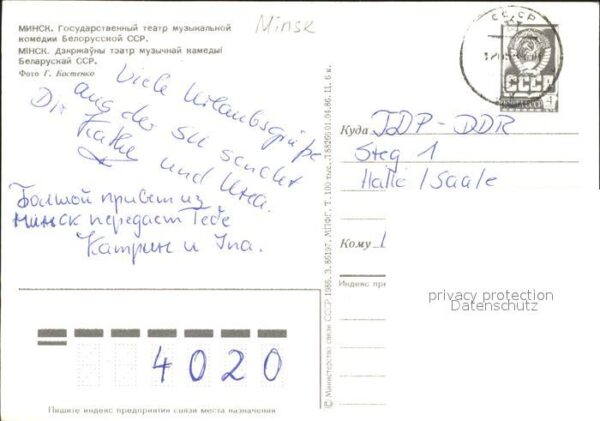 МИНСК. Государственный театр музыкальной
комедии Белорусской ССР.
МІНСК. Дзяржаўны тэатр музычнай камедыі
Беларускай ССР.
Фото Г. Костенко
Minsk
Viele Urlaubsgrüße
aus der SU sendet
Dir Kathr und Ина.
Большой привет из
Минск передаст Тебе
Катрин и Ina.
4020
Пишите индекс предприятия связи места назначения
© Министерство связи СССР 1986. З. 86197. МПФГ. Т. 100 тыс. 01.04.86. Ц. 6 к.
СССР
СССР
Куда ГДР-DDR
Steg 1
Halle/Saale
Кому
Индекс пре
privacy protection
Datenschutz